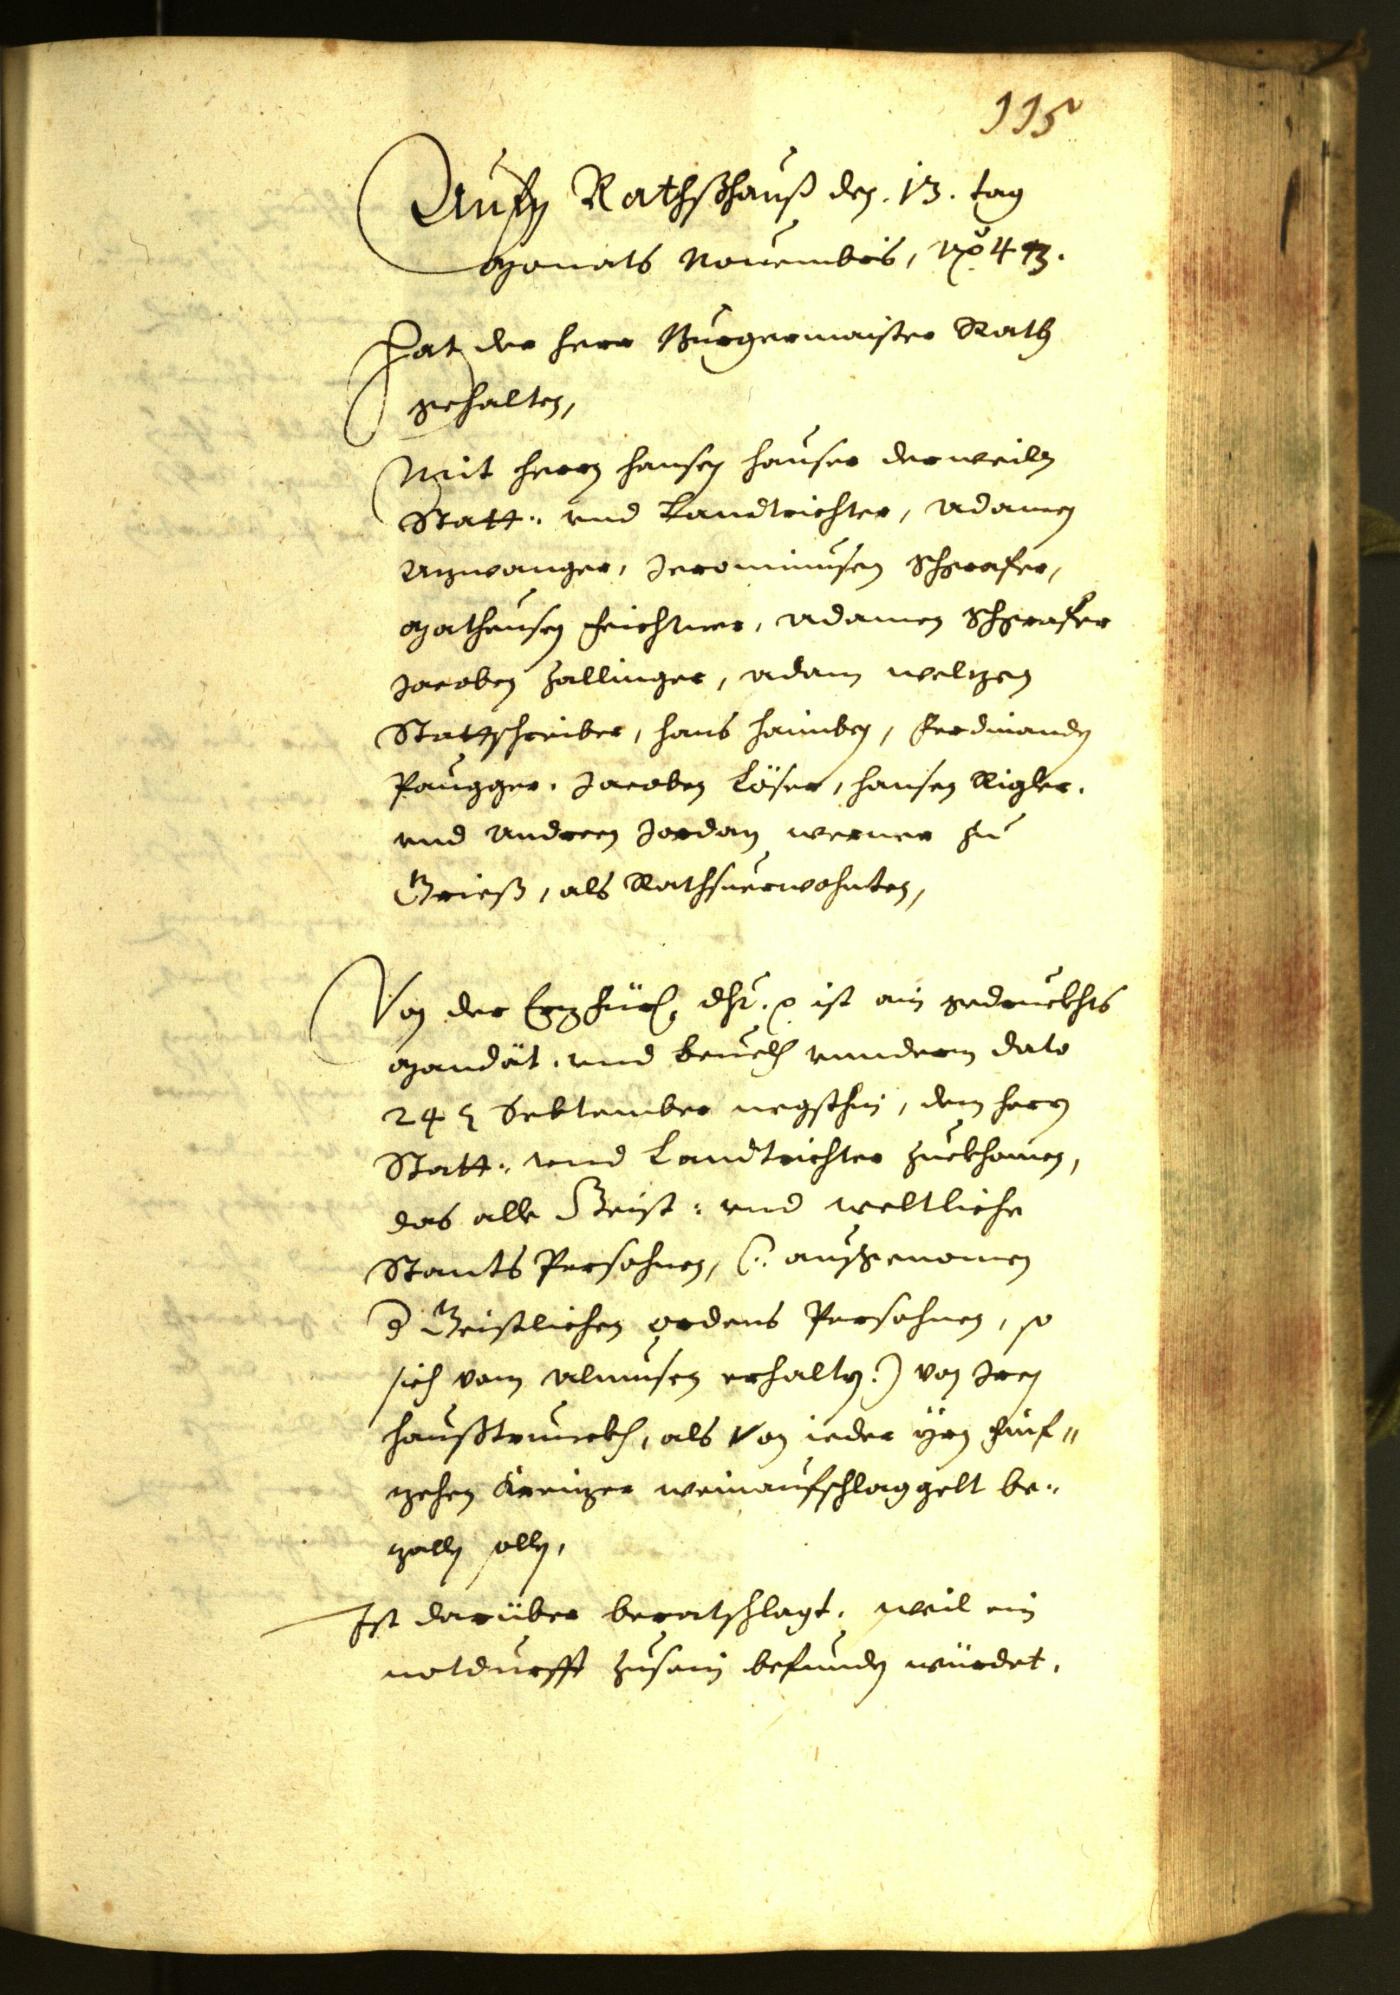 115
Aufn Rathshauß den. 13. tag
Monats Nouembris, Ao 43.
Hat der herr Burgermaister Rath
gehalten,
Mit herrn hansen hauser derweiln
Statt: vnd Landtrichter, Adamen
Agwanger, Jeronimusen Schgrafer,
Matheusen Feichtner, Adamen Schgrafer
Jacoben Zallinger, Adam weltzen
Stattschreiber, hans haimben, Ferdinanden
Paugger. Jacoben Löser, hansen Rigler.
vnd Andreen Jordan werner zu
Grieß, als Rathsuerwohnten,
Von der Erzfürl. dht. ist ain gedruckhts
Mandät. vnd beuelh vnnderm dato
24 September negsthin, dem herrn
Statt: vnd Landtrichter zuekhomen,
das alle Geist: vnd weltliche
Stants Persohnen, (: außgenomen
d Geistlichen ordens Persohnen, so
sich vom Almusen erhalten:) von Iren
haußtrunckh, als Von ieder Yrn Finf-
zehen Kreizer weinaufschlaggelt be-
zallen sollen,
Ist darüber beratschlagt, weil ein
notdurfft zusein befunden würdet,